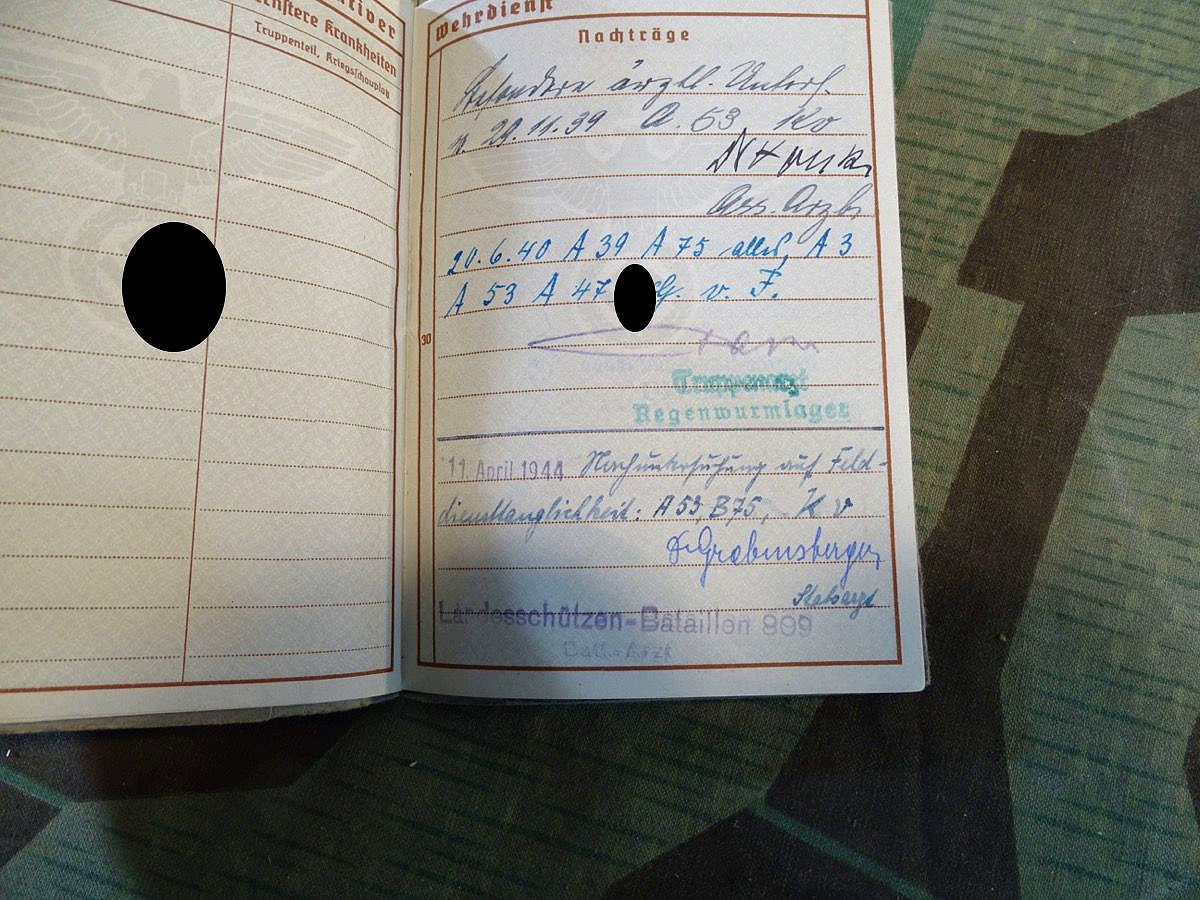 chstere Krankheiten
Truppenteil, Kriegsschauplatz
Wehrdienst
Nachträge
Besondere ärztl. Unters.
v. 29.11.39 A. 53 Kv
Ass. Arzt
20.6.40 A 39 A 75 alles, A 3
A 53 A 47 v. F.
30
Truppenarzt
Regenwurmlager
11. April 1944 Nachuntersuchung auf Feld-
diensttauglichkeit: A 53, B 75, Kv
Dr Grabensberger
Stabsarzt
Landesschützen-Bataillon 999
Batl.-Arzt